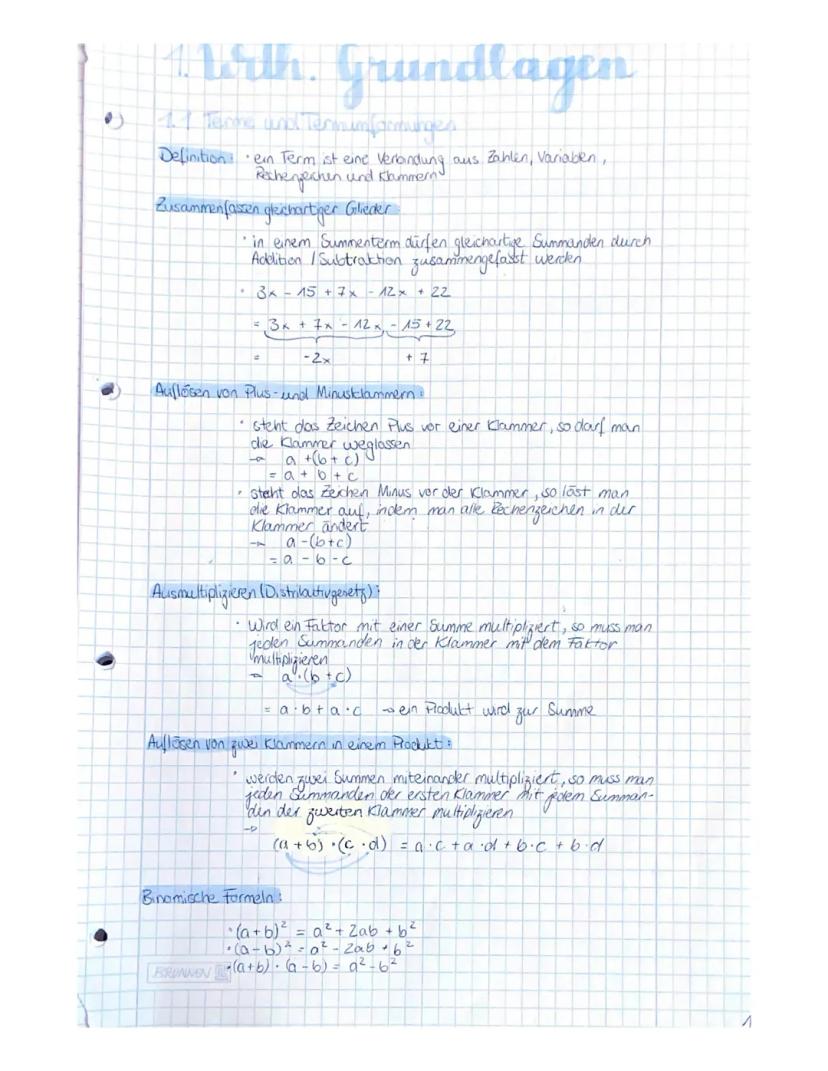 1. Wdh. Grundlagen
1.1 Terme und Termumformungen
Definition: • ein Term ist eine Verbindung aus Zahlen, Variablen,
Rechenzeichen und Klammern
Zusammenfassen gleichartiger Glieder:
• in einem Summenterm dürfen gleichartige Summanden durch
Addition / Subtraktion zusammengefasst werden
• 3x - 15 + 7x - 12x + 22
= 3x + 7x - 12x - 15 + 22
= -2x + 7
Auflösen von Plus- und Minusklammern:
• steht das Zeichen Plus vor einer Klammer, so darf man
die Klammer weglassen
→ a + (b + c)
= a + b + c
• steht das Zeichen Minus vor der Klammer, so löst man
die Klammer auf, indem man alle Rechenzeichen in der
Klammer ändert
→ a - (b + c)
= a - b - c
Ausmultiplizieren (Distributivgesetz):
• Wird ein Faktor mit einer Summe multipliziert, so muss man
jeden Summanden in der Klammer mit dem Faktor
multiplizieren
→ a · (b + c)
= a · b + a · c → ein Produkt wird zur Summe
Auflösen von zwei Klammern in einem Produkt:
• werden zwei Summen miteinander multipliziert, so muss man
jeden Summanden der ersten Klammer mit jedem Summan-
den der zweiten Klammer multiplizieren
→
(a + b) · (c · d) = a · c + a · d + b · c + b · d
Binomische Formeln:
• (a + b)² = a² + 2ab + b²
• (a - b)² = a² - 2ab + b²
BRUNNEN • (a + b) · (a - b) = a² - b²
1